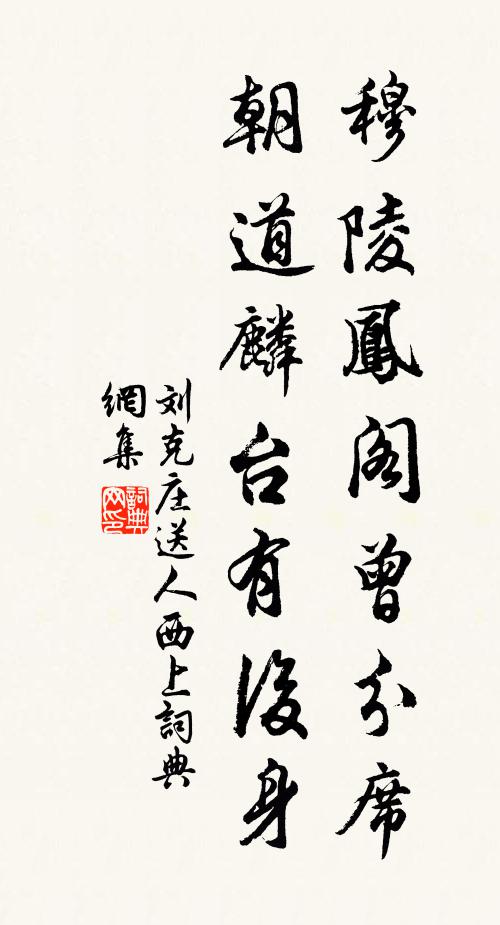 穆陵鳳阁曾分席
朝道麟台有後身
刘克庄送人西上詞典
網集
詞典
网印